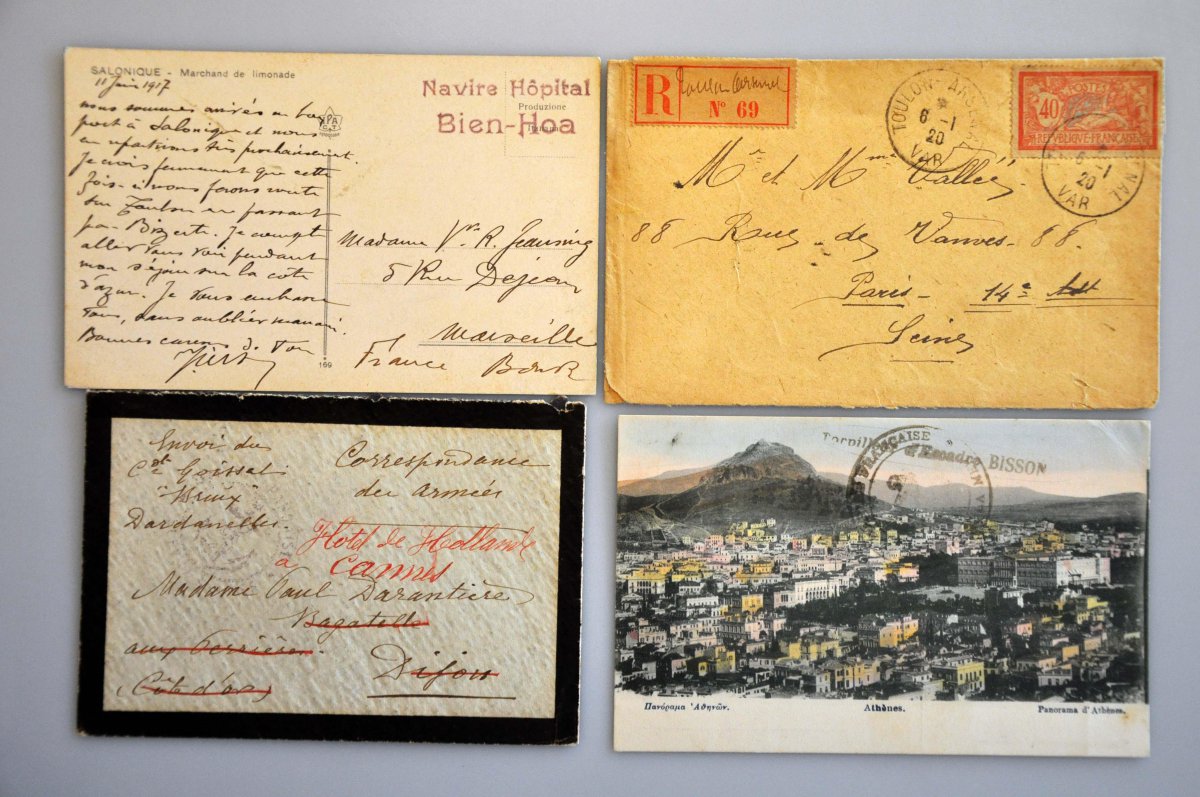 SALONIQUE - Marchand de limonade
11 Juin 1917
nous sommes arrivés à bon
port à Salonique et nous
en repartirons très prochainement.
Je crois fermement que cette
fois-ci nous ferons route
sur Toulon en passant
par Bizerte. Je compte
aller vous voir pendant
mon séjour sur la côte
d'azur. Je vous embrasse
tous, sans oublier maman.
Navire Hôpital
Produzione
Bien-Hoa
Italiana
Madame Vve R.
5 Rue Dejean
Marseille
France
169
R
Toulon Arsenal
No 69
TOULON-ARSENAL
6 -1
20
VAR
40
POSTES
REPUBLIQUE FRANÇAISE
6 -1
20
VAR
Mr et Mme Vallée.
88 Rue de Vanves - 88.
Paris - 14e
Seine
Envoi du
Ct Goissat
"Brux"
Dardanelles.
Correspondance
des Armées
Hotel de Hollande
à Cannes
Madame Paul Darantière
Bagatelle
aux Perrières
Dijon
(Côte d'or)
Torpilleur d'Escadre BISSON
FRANÇAISE
Πανόραμα Ἀθηνῶν.
Athènes.
Panorama d'Athènes.